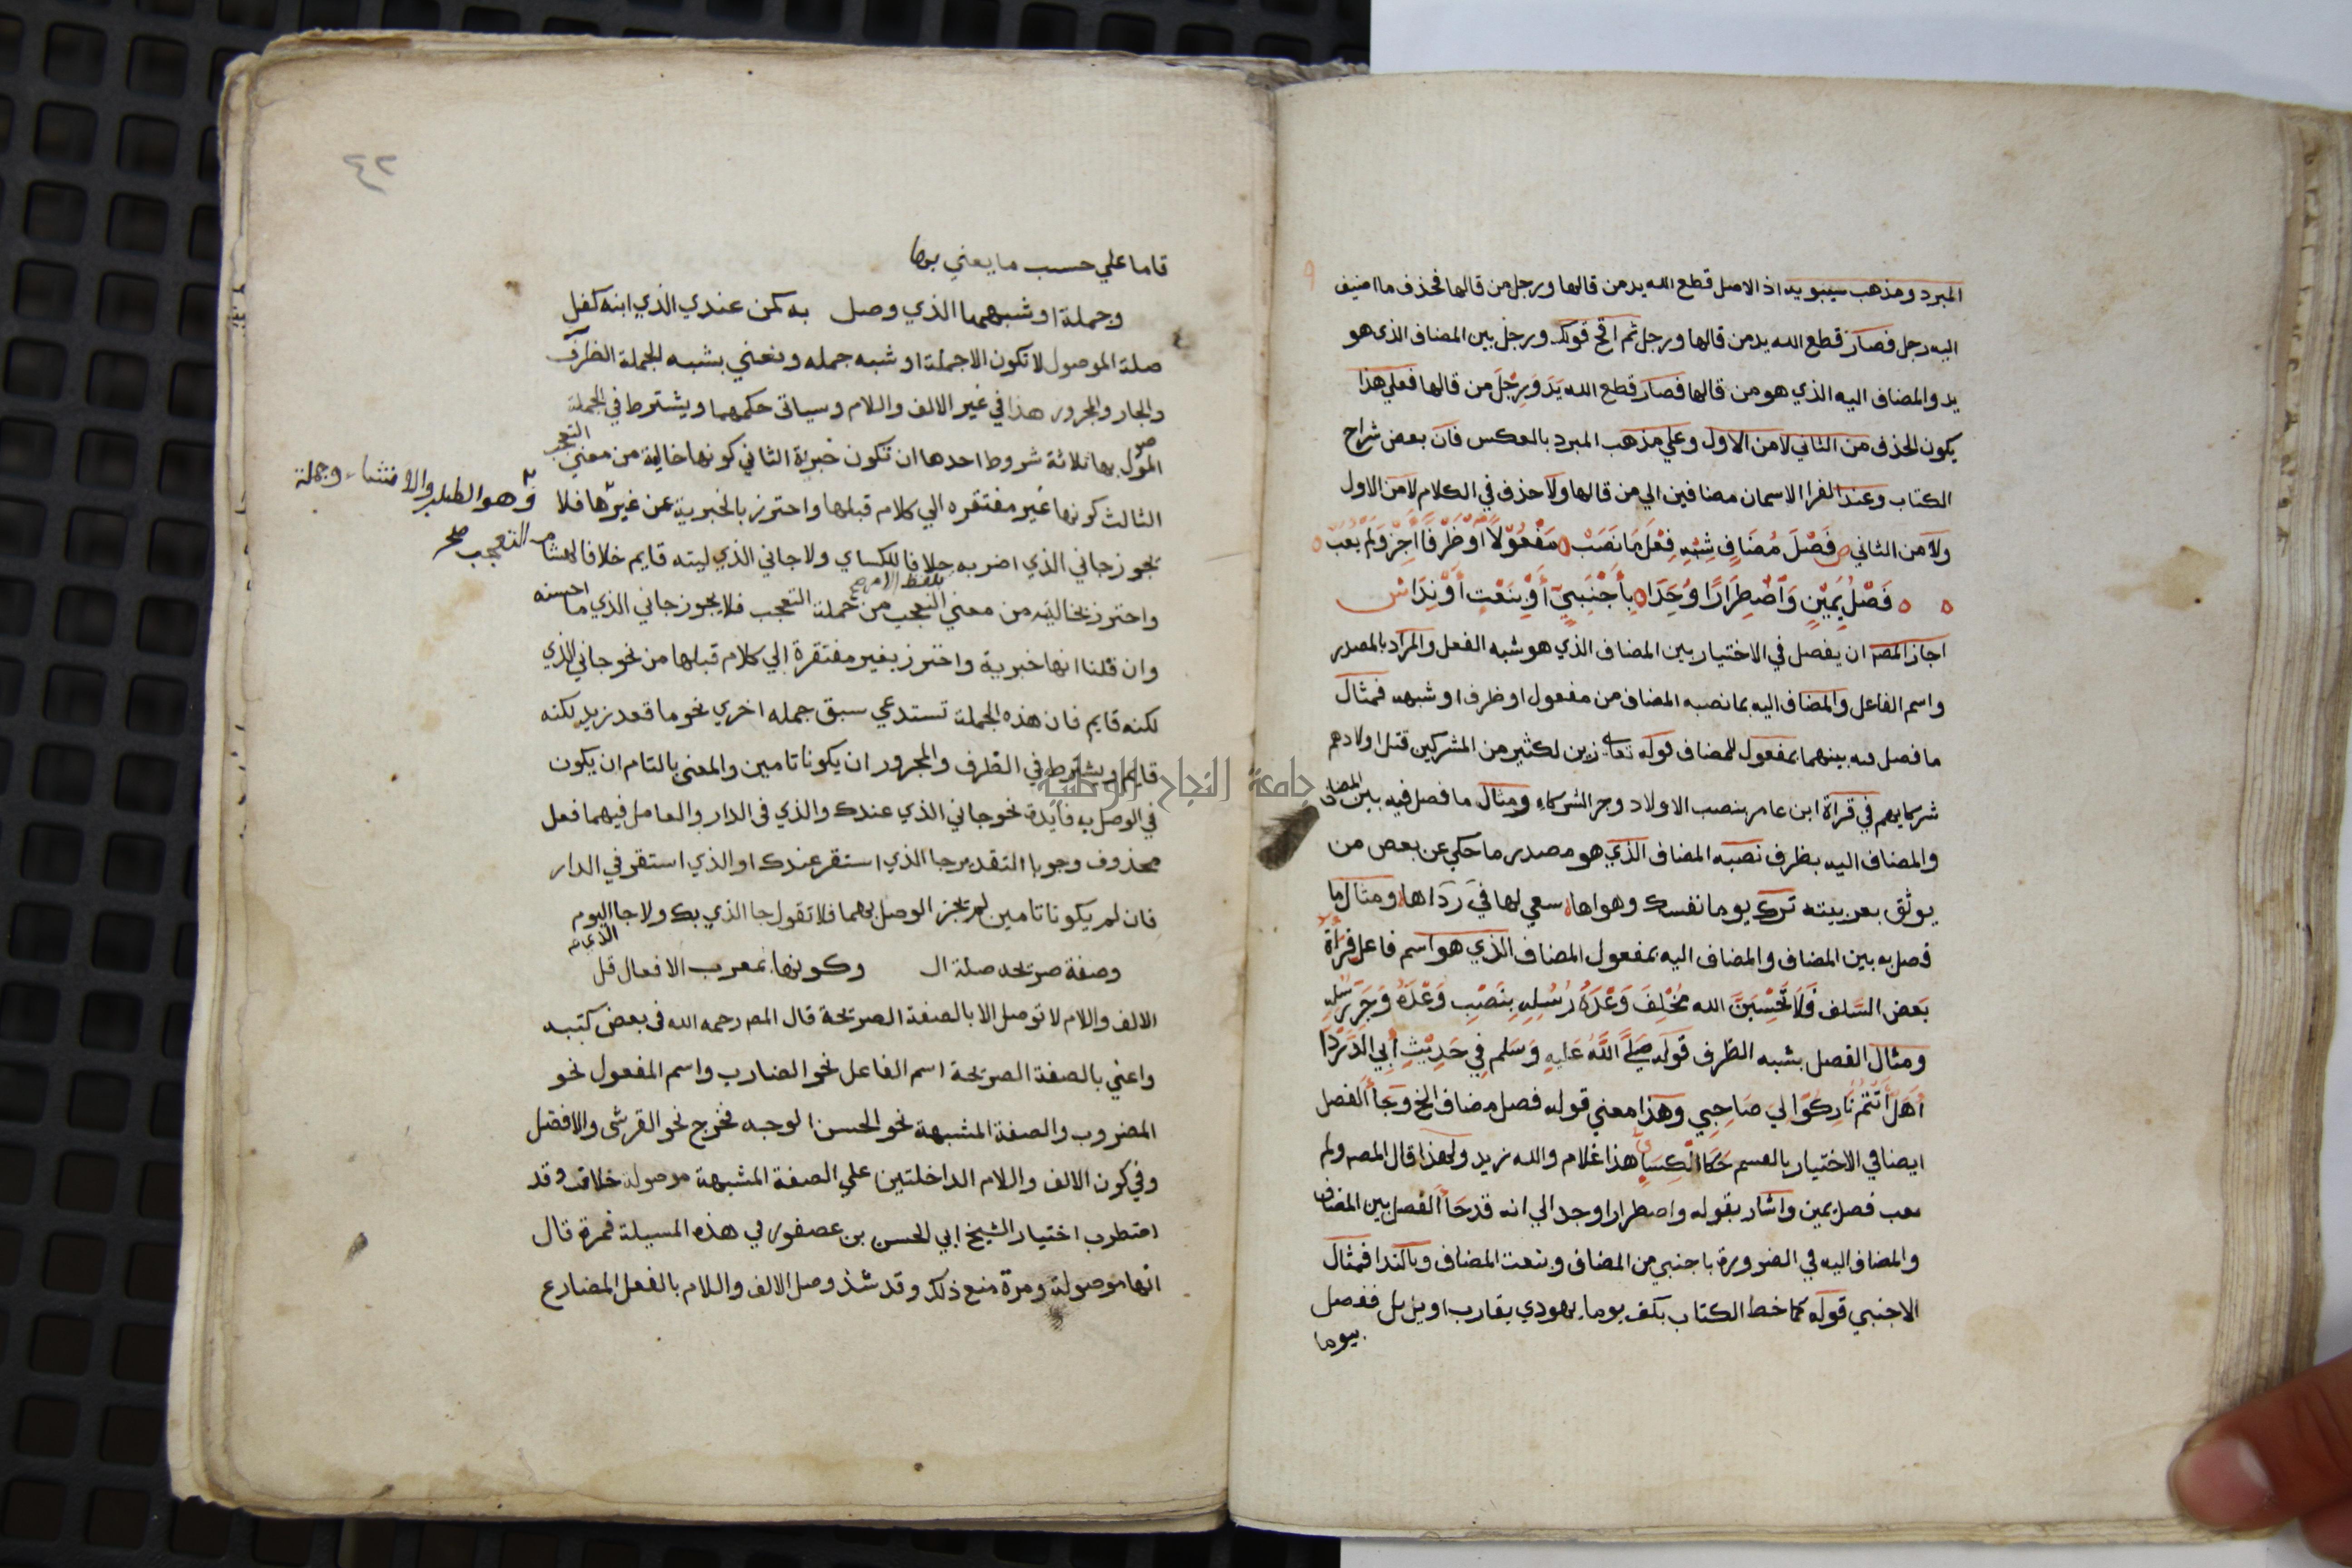 المبرد ومذهب سيبويه اذ الاصل قطع الله يد من قالها ورجل من قالها فحذف ما اضيف
اليه رجل فصار قطع الله يد من قالها ورجل ثم اقحم قولك ورجل بين المضاف الذي هو
يد والمضاف اليه الذي هو من قالها فصار قطع الله يَدَ وَرِجْلَ من قالها فعلي هذا
يكون الحذف من الثاني لا من الاول وعلي مذهب المبرد بالعكس قال بعض شراح
الكتاب وعند الفرا الاسمان مضافين الي من قالها ولا حذف في الكلام لا من الاول
ولا من الثاني ص فَصْلَ مُضَافٍ شِبْهِ فِعْلٍ مَا نَصَبْ مَفْعُوْلًا اوْ ظَرْفًا اَجِزْ وَلَمْ يعَبْ
فَصْلُ يَمِيْنٍ وَاضْطِرَارًا وُجِدَا بِأَجْنَبِيٍّ أَوْ بِنَعْتٍ أَوْ نِدَا ش
اجاز المصه ان يفصل في الاختيار بين المضاف الذي هو شبه الفعل والمراد بالمصدر
واسم الفاعل والمضاف اليه بما نصبه المضاف من مفعول او ظرف او شبهه فمثال
ما فصل فيه بينهما بمفعول للمضاف قوله تعالى زين لكثير من المشركين قتل اولادهم
شركايهم في قراة ابن عامر بنصب الاولاد وجر الشركاء ومثال ما فصل فيه بين المضاف
والمضاف اليه بظرف نصبه المضاف الذي هو مصدر ما حكي عن بعض من
يوثق بعربيته ترك يوما نفسك وهواها سعي لها في رداها ومثال ما
فصل به بين المضاف والمضاف اليه بمفعول المضاف الذي هو اسم فاعل قراة
بَعض السَّلف فَلَا تَحْسِبَنَّ الله مُخْلِفَ وَعْدَهُ رُسُلِهِ بِنَصْبِ وَعْدَهُ وَجَرِّ رُسُلِهِ
ومثال الفصل بشبه الظرف قوله صَلَّى اللَّهُ عَلَيهِ وَسَلم فِي حَدِيْثِ أَبِي الدَّرْدَا
هَلْ أَنْتُمْ تَارِكُوا لِي صَاحِبِي وهذا معني قوله فصل مضاف الخ وجأ الفصل
ايضا في الاختيار بالقسم حَكَا الْكِسَاي هذا غلام والله زيد ولهذا قال المصه ولم
يعب فصل يمين واشار بقوله واضطرارا وجد الي انه قد جَأ الفصل بين المضاف
والمضاف اليه في الضرورة باجنبي من المضاف وبنعت المضاف وبالندا فمثال
الاجنبي قوله كما خط الكتاب بكف يوما يهودي يقارب او يزيل ففصل
بيوما
٤٢
قاما علي حسب ما يعني بها
وجملة او شبهها الذي وصل به كمن عندي الذي ابنه كفل
صلة الموصول لا تكون الا جملة او شبه جمله ونعني بشبه الجملة الظرف
والجار والمجرور هذا في غير الالف واللام وسياتي حكمهما ويشترط في الجملة
الموصول بها ثلاثة شروط احدها ان تكون خبرية الثاني كونها خالية من معني التعجب
الثالث كونها غير مفتقره الي كلام قبلها واحترز بالخبرية عن غيرها فلا
وهو الطلب والانشا وجملة
التعجب صح
يجوز جاني الذي اضربه خلافا للكساي ولا جاني الذي ليته قايم خلافا لهشام
بلفظ الامر صح
واحترز بخالية من معني التعجب من جملة التعجب فلا يجوز جاني الذي ما احسنه
وان قلنا انها خبرية واحترز بغير مفتقرة الي كلام قبلها من نحو جاني الذي
لكنه قايم فان هذه الجملة تستدعي سبق جمله اخري نحو ما قعد زيد لكنه
قايم ويشترط في الظرف والمجرور ان يكونا تامين والمعني بالتام ان يكون
جامعة النجاح الوطنية
في الوصل به فايدة نحو جاني الذي عندك والذي في الدار والعامل فيهما فعل
محذوف وجوبا التقدير جا الذي استقر عندك او الذي استقر في الدار
فان لم يكونا تامين لم يجز الوصل بهما فلا تقول جا الذي بك ولا جا اليوم
الذي
وصفة صريحه صلة ال وكونها بمعرب الافعال قل
الالف واللام لا توصل الا بالصفة الصريحة قال المصه رحمه الله في بعض كتبه
واعني بالصفة الصريحة اسم الفاعل نحو الضارب واسم المفعول نحو
المضروب والصفة المشبهة نحو الحسن الوجه فخرج نحو القرشي والافضل
وفي كون الالف واللام الداخلتين علي الصفة المشبهة موصولة خلاف وقد
اضطرب اختيار الشيخ ابي الحسن بن عصفور في هذه المسيلة فمرة قال
انها موصولة ومرة منع ذلك وقد شذ وصل الالف واللام بالفعل المضارع